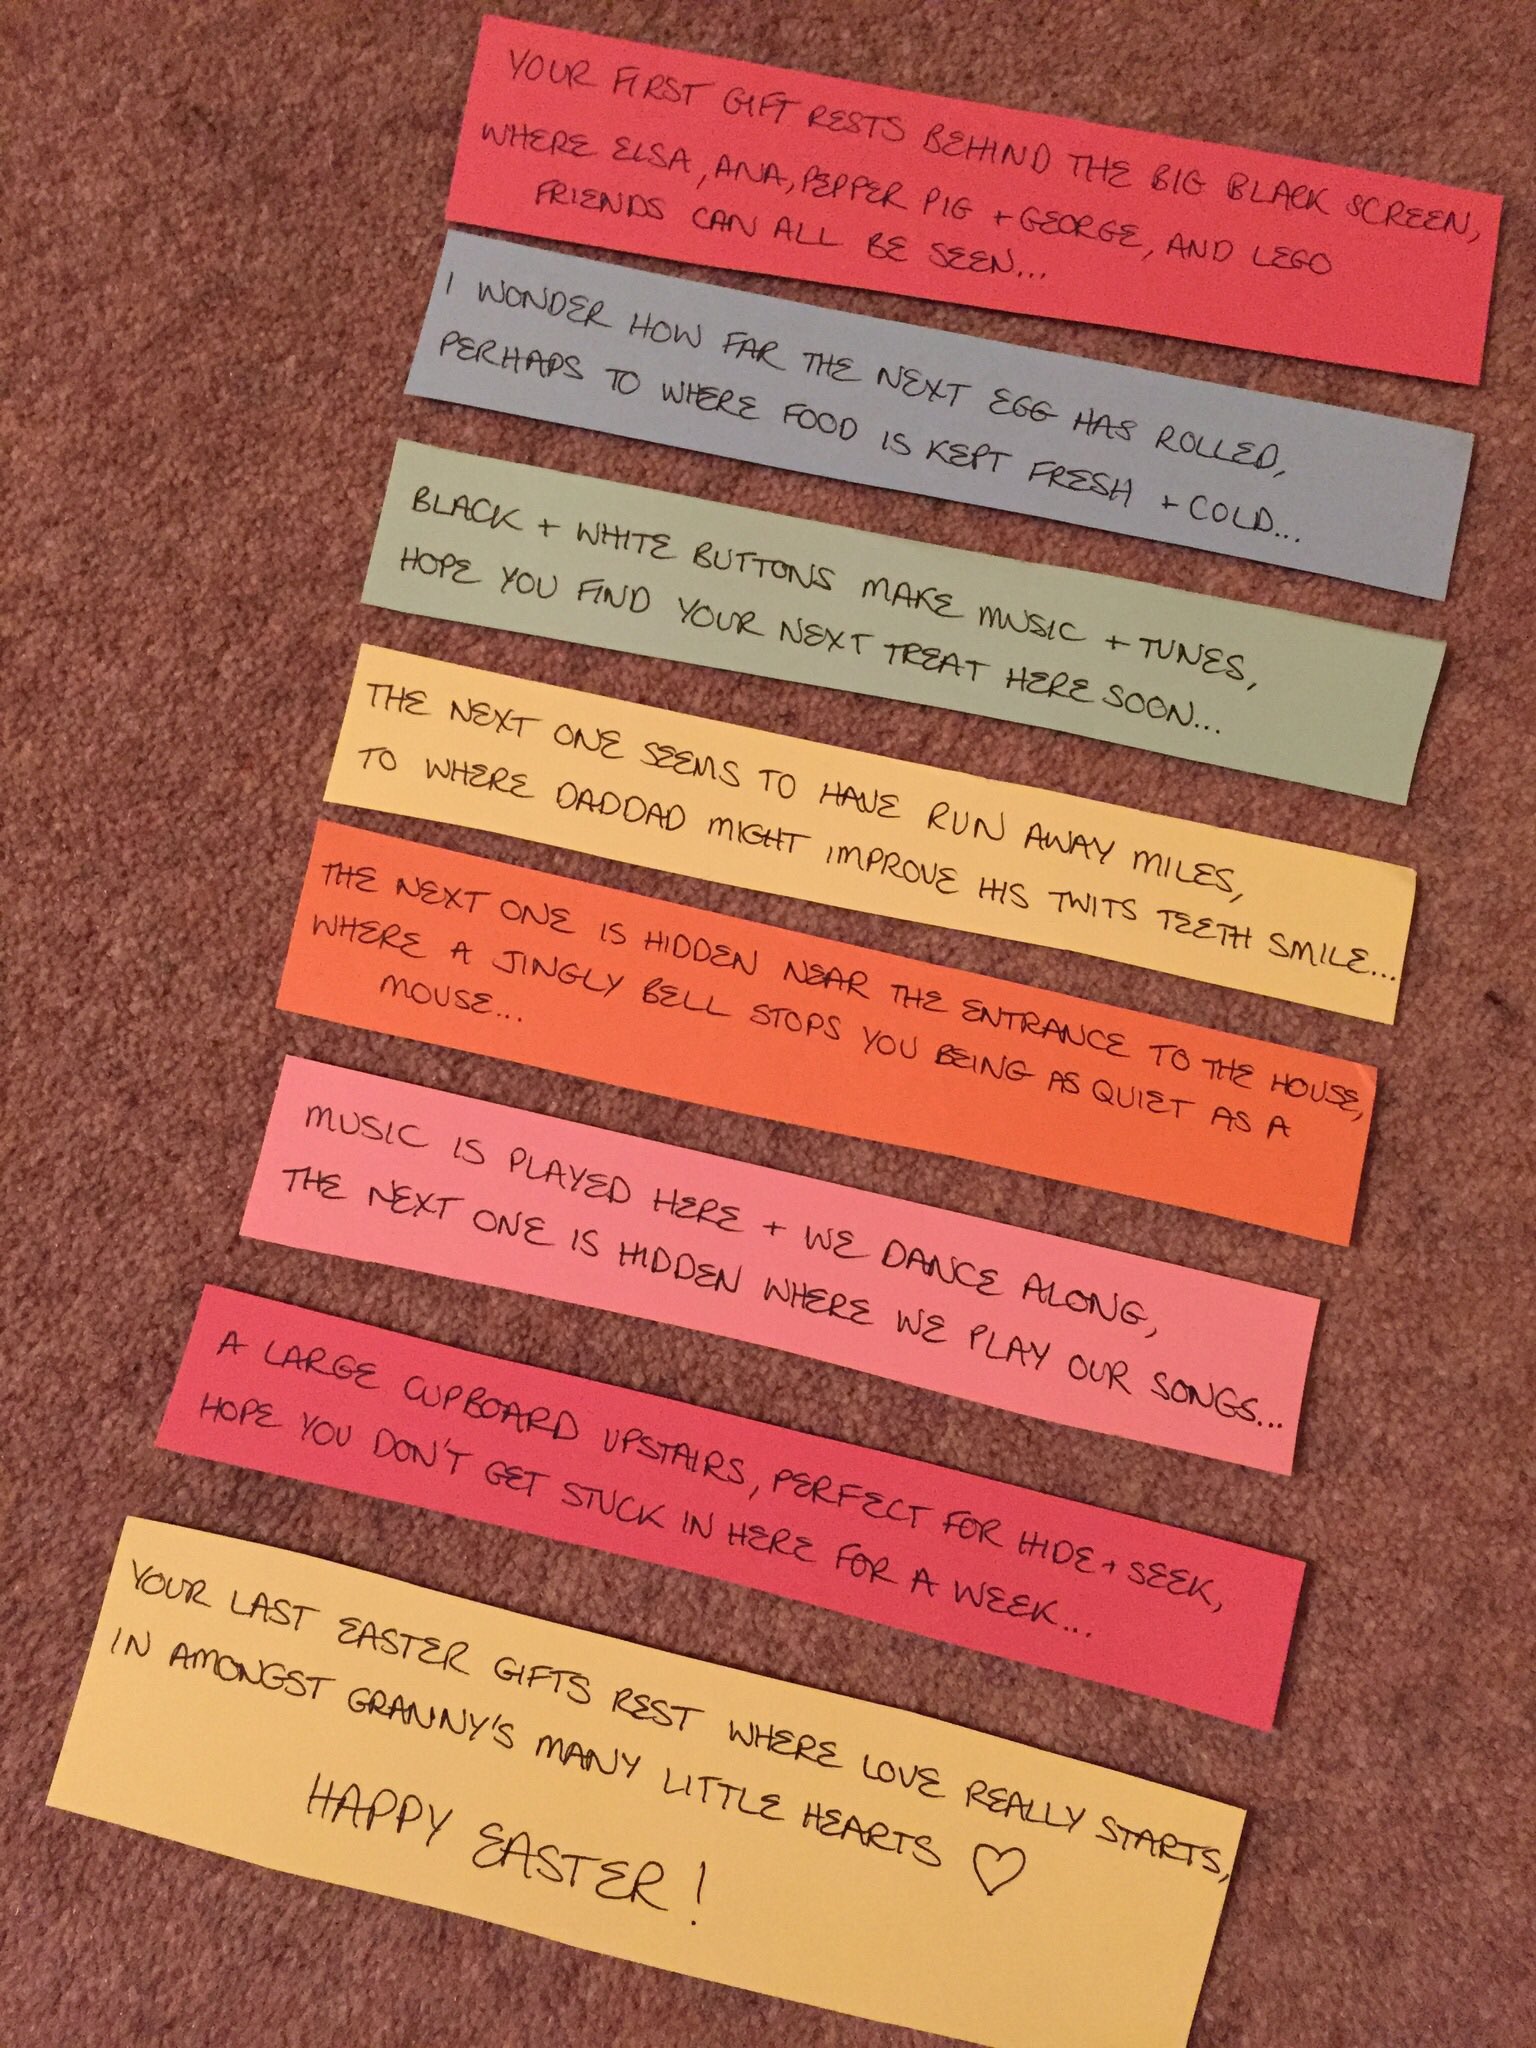 YOUR FIRST GIFT RESTS BEHIND THE BIG BLACK SCREEN,
WHERE ELSA, ANA, PEPPER PIG + GEORGE, AND LEGO
FRIENDS CAN ALL BE SEEN...
I WONDER HOW FAR THE NEXT EGG HAS ROLLED,
PERHAPS TO WHERE FOOD IS KEPT FRESH + COLD...
BLACK + WHITE BUTTONS MAKE MUSIC + TUNES,
HOPE YOU FIND YOUR NEXT TREAT HERE SOON...
THE NEXT ONE SEEMS TO HAVE RUN AWAY MILES,
TO WHERE DADDAD MIGHT IMPROVE HIS TWITS TEETH SMILE...
THE NEXT ONE IS HIDDEN NEAR THE ENTRANCE TO THE HOUSE,
WHERE A JINGLY BELL STOPS YOU BEING AS QUIET AS A
MOUSE...
MUSIC IS PLAYED HERE + WE DANCE ALONG,
THE NEXT ONE IS HIDDEN WHERE WE PLAY OUR SONGS...
A LARGE CUPBOARD UPSTAIRS, PERFECT FOR HIDE + SEEK,
HOPE YOU DON'T GET STUCK IN HERE FOR A WEEK...
YOUR LAST EASTER GIFTS REST WHERE LOVE REALLY STARTS,
IN AMONGST GRANNY'S MANY LITTLE HEARTS ♡
HAPPY EASTER!